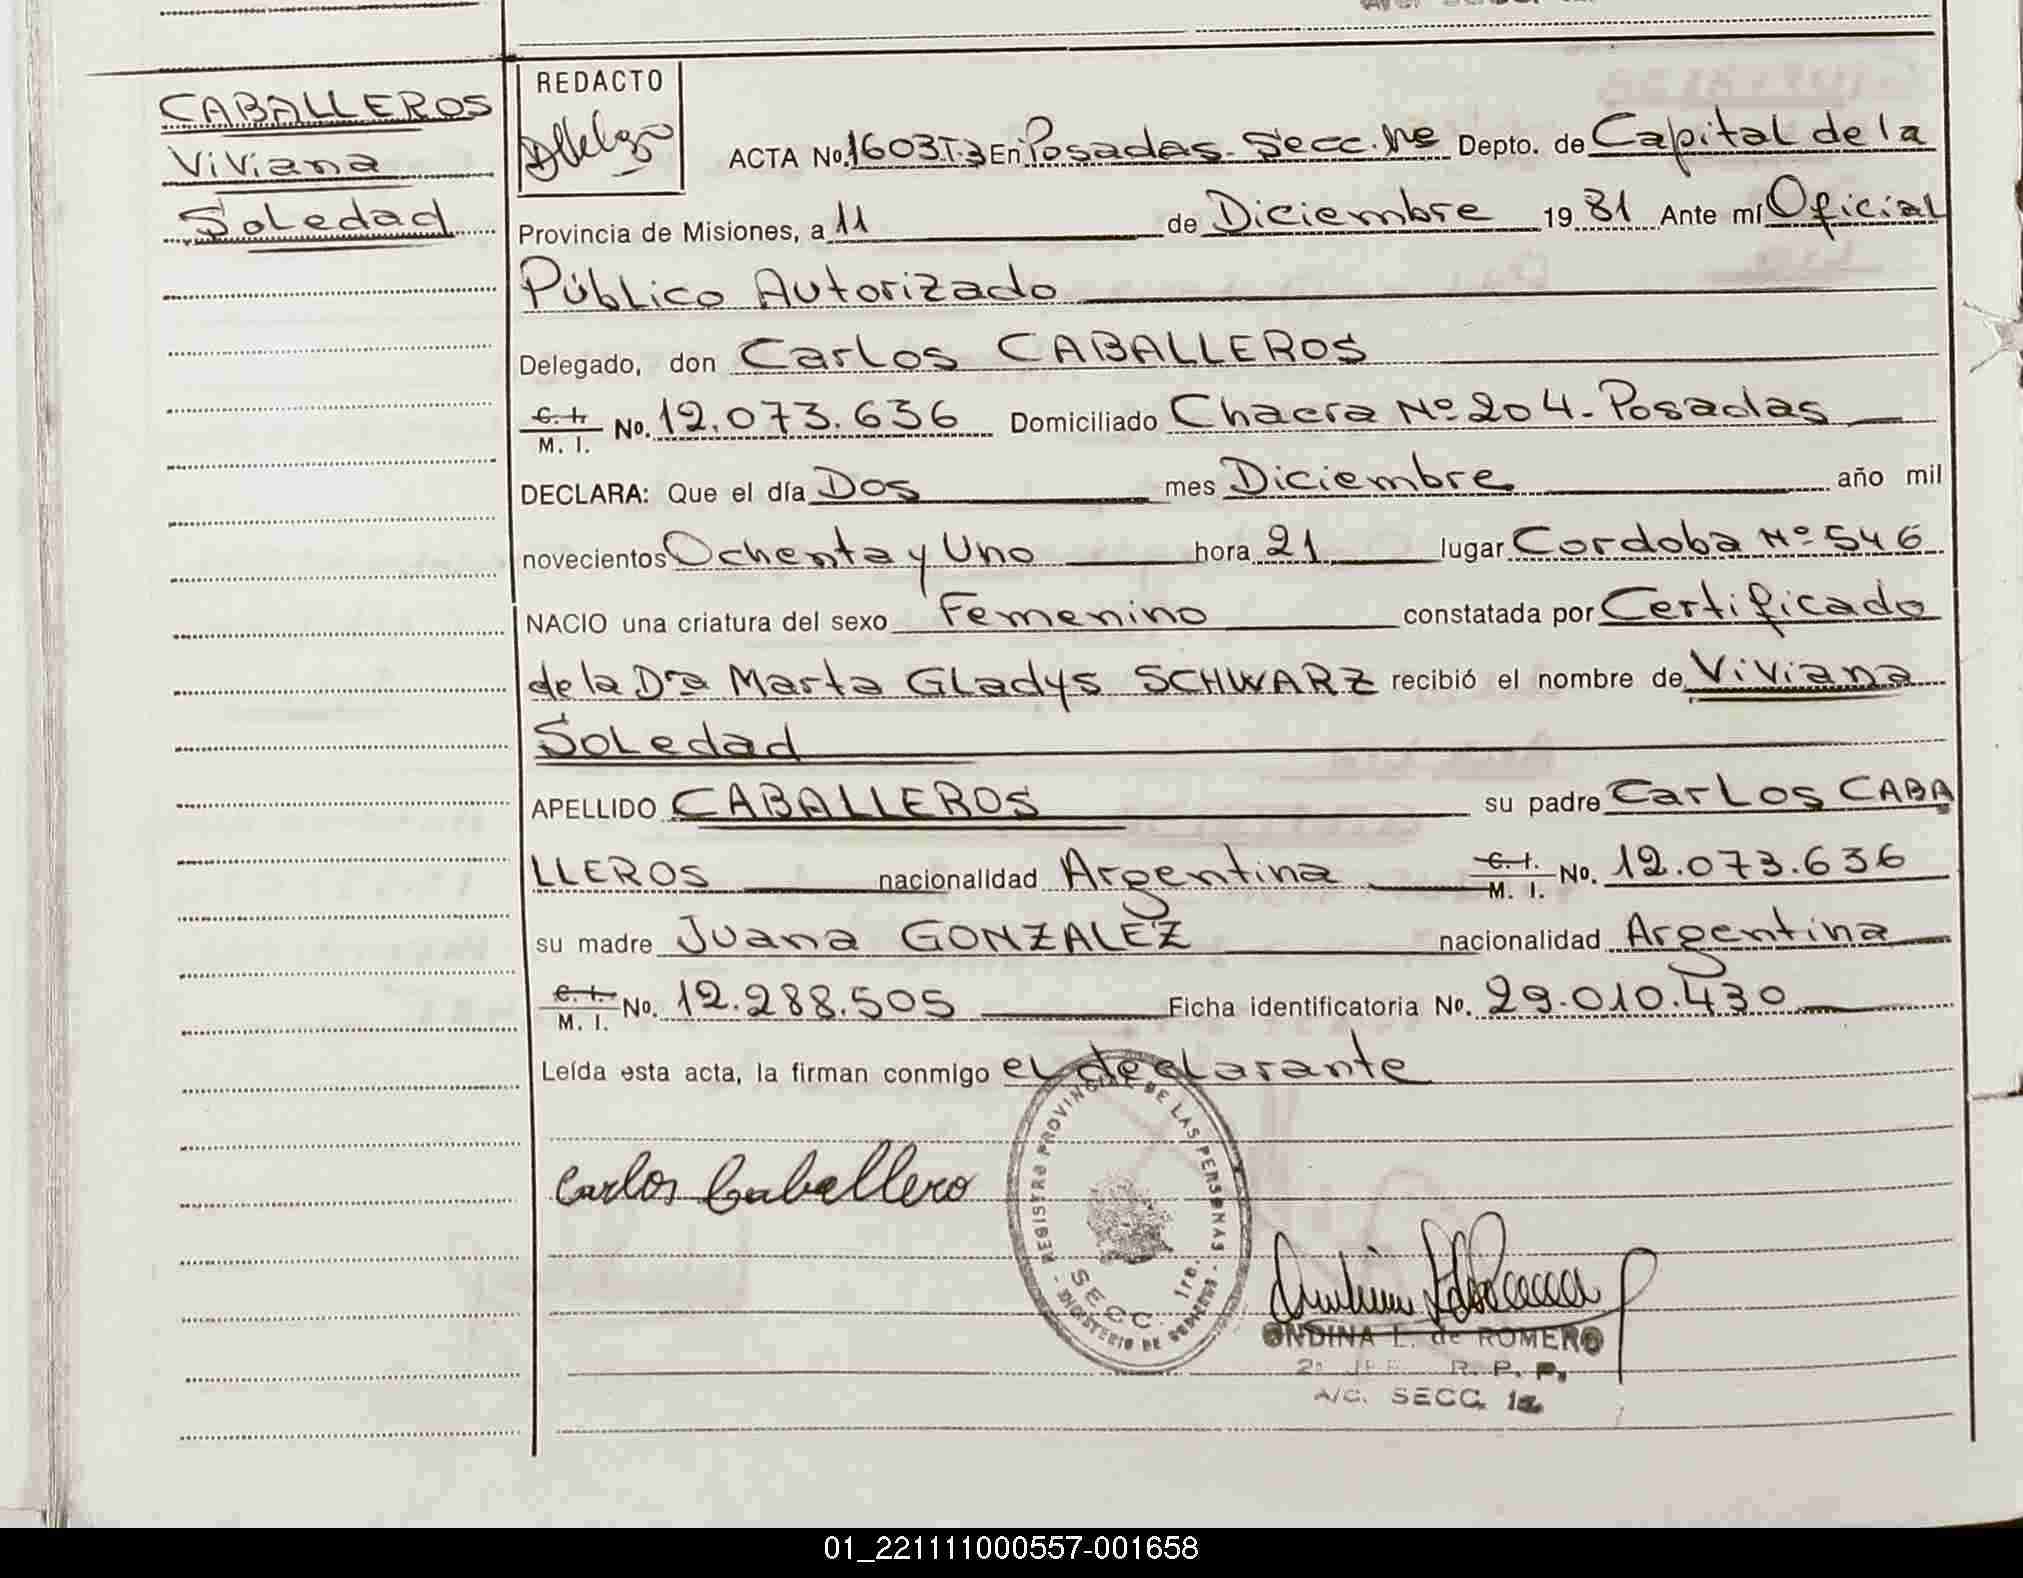 CABALLEROS
Viviana
Soledad
REDACTO
ACTA No. 1603 T.3 En Posadas - Secc. 1ra Depto. de Capital de la
Provincia de Misiones, a 11 de Diciembre 1981 Ante mí Oficial
Público Autorizado
Delegado, don Carlos CABALLEROS
C. I.
M. I. No. 12.073.636 Domiciliado Chacra Nº 204 - Posadas
DECLARA: Que el día Dos mes Diciembre año mil
novecientos Ochenta y Uno hora 21 lugar Cordoba Nº 546
NACIO una criatura del sexo Femenino constatada por Certificado
de la Dra Marta Gladys SCHWARZ recibió el nombre de Viviana
Soledad
APELLIDO CABALLEROS su padre Carlos CABA
LLEROS nacionalidad Argentina C. I.
M. I. No. 12.073.636
su madre Juana GONZALEZ nacionalidad Argentina
C. I.
M. I. No. 12.288.505 Ficha identificatoria No. 29.010.430
Leída esta acta, la firman conmigo el declarante
Carlos Caballero
REGISTRO PROVINCIAL DE LAS PERSONAS
SECC. 1ra.
MINISTERIO DE GOBIERNO
ONDINA L. de ROMERO
2º JEFE R. P. P.
A/C. SECC. 1a.
01_221111000557-001658